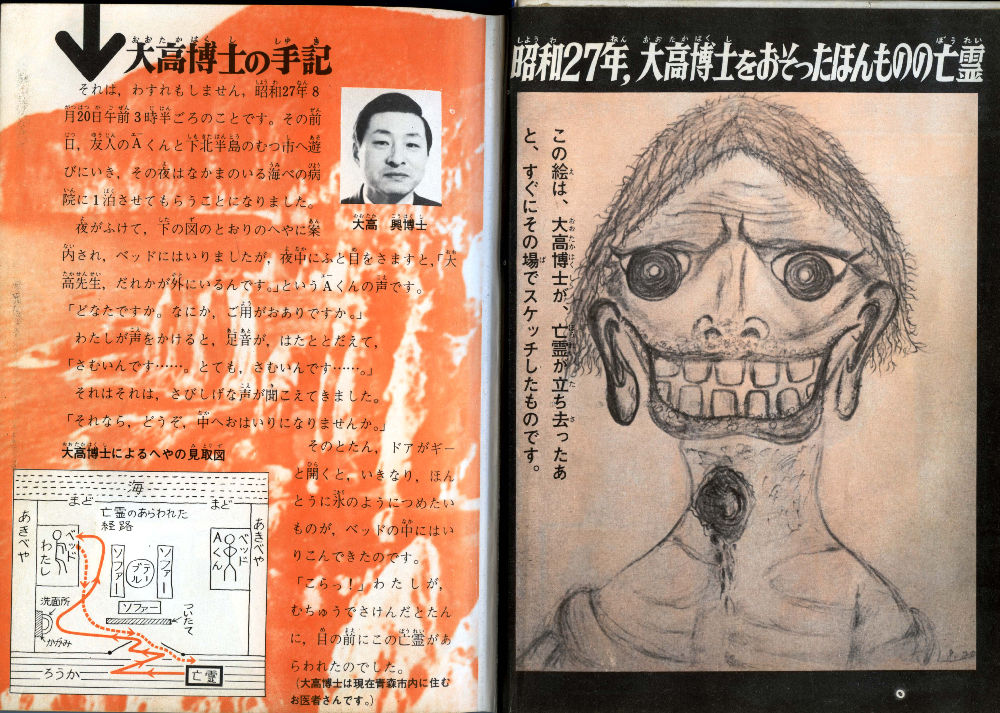 大高博士の手記
それは，わすれもしません，昭和27年8
月20日午前3時半ごろのことです。その前
日，友人のAくんと下北半島のむつ市へ遊
びにいき，その夜はなかまのいる海べの病
院に1泊させてもらうことになりました。
夜がふけて，下の図のとおりのへやに案
内され，ベッドにはいりましたが，夜中にふと目をさますと，「大
高先生，だれかが外にいるんです。」というAくんの声です。
「どなたですか。なにか，ご用がおありですか。」
わたしが声をかけると，足音が，はたととだえて，
「さむいんです……。とても，さむいんです……。」
それはそれは，さびしげな声が聞こえてきました。
「それなら，どうぞ，中へおはいりになりませんか。」
そのとたん，ドアがギー
と開くと，いきなり，ほん
とうに氷のようにつめたい
ものが，ベッドの中にはい
りこんできたのです。
「こらっ！」わたしが，
むちゅうでさけんだとたん
に，目の前にこの亡霊があ
らわれたのでした。
(大高博士は現在青森市内に住む
お医者さんです。)
大高　興博士
大高博士によるへやの見取図
海
まど
まど
亡霊のあらわれた
経路
あきべや
ベッド
わたし
ソファー
テーブル
ソファー
ベッド
Aくん
あきべや
ソファー
ついたて
洗面所
かがみ
ろうか
亡霊
昭和27年，大高博士をおそったほんものの亡霊
この絵は、大高博士が、亡霊が立ち去ったあ
と、すぐにその場でスケッチしたものです。